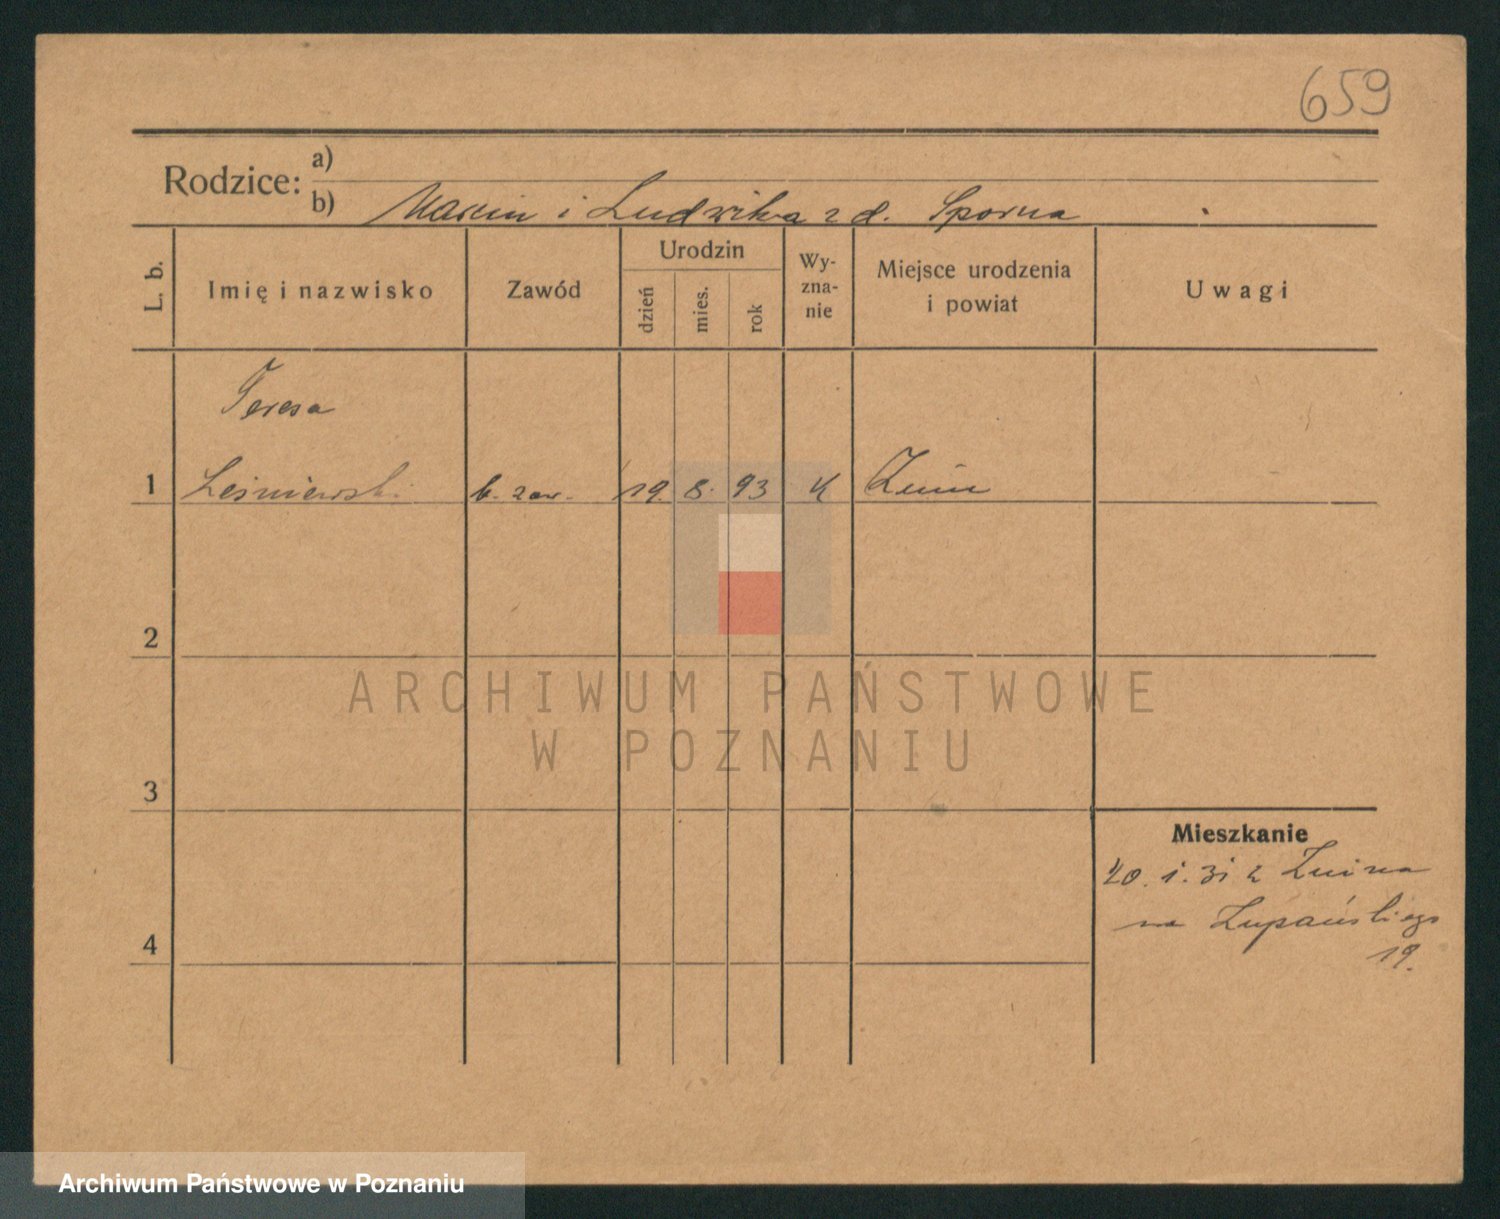 659
Rodzice: a)
b) Marcin i Ludwika z d. Sporna
L. b.
Imię i nazwisko
Zawód
Urodzin
dzień
mies.
rok
Wy-
zna-
nie
Miejsce urodzenia
i powiat
Uwagi
Teresa
1 Leśniewski b. zaw. 19. 8. 93 k Żnin
2
ARCHIWUM PAŃSTWOWE
W POZNANIU
3
Mieszkanie
20. 1. 31 z Żnina
na Łupańskiego
4
19.
Archiwum Państwowe w Poznaniu